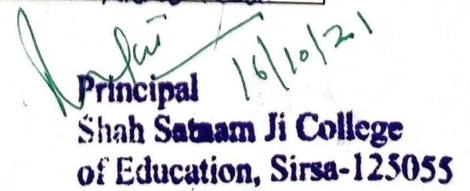 16/10/21
Principal
Shah Satnam Ji College
of Education, Sirsa-125055